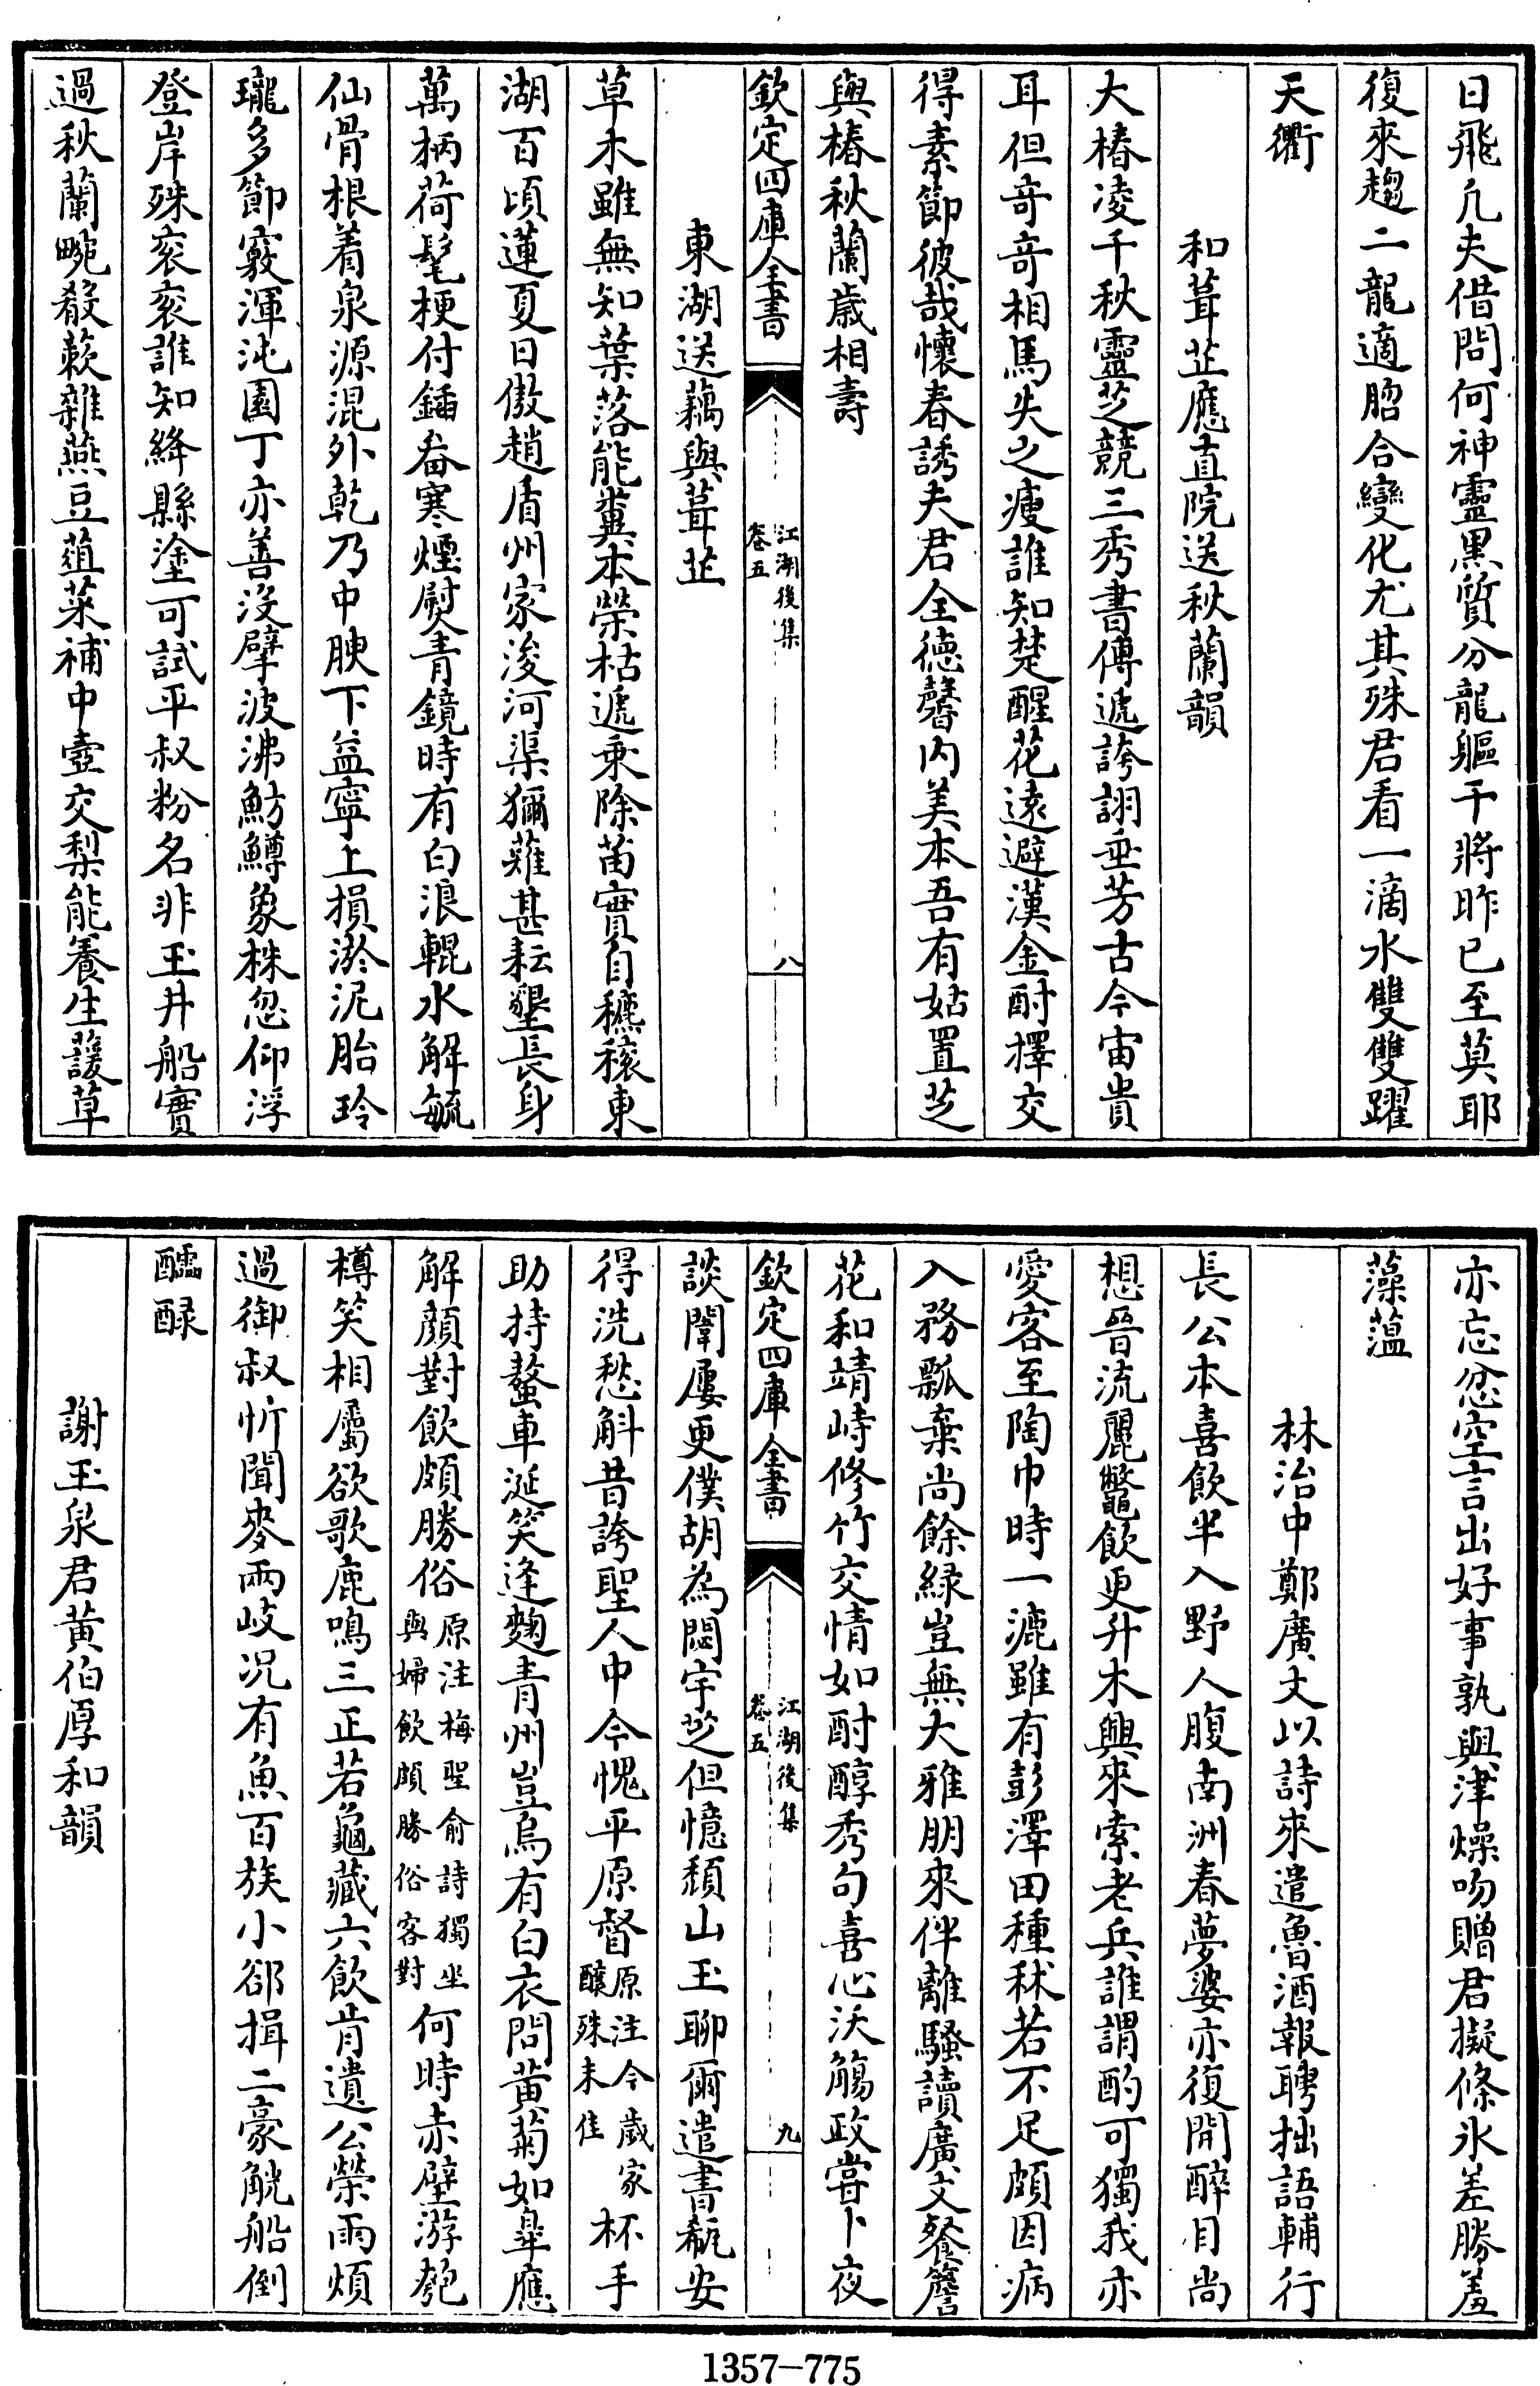 日飛几夫借問何神靈黒質分龍軀干將昨已至莫耶
復來趨二龍適脗合變化尤其殊君看一滴水雙雙躍
天衢
和葺芷應直院送秋蘭韻
大椿凌千秋靈芝競三秀書傳遞誇詡垂芳古今宙貴
耳但奇奇相馬失之瘦誰知楚醒花遠避漢金酎擇交
得素節彼哉懷春誘夫君全德馨内美本吾有姑置芝
與椿秋蘭歲相壽
欽定四庫全書
江湖後集
卷五
八
東湖送藕與葺芷
草木雖無知葉落能糞本榮枯遞乘除菑實自穮蔉東
湖百頃蓮夏日傲趙盾州家浚河渠獼薙甚耘墾長身
萬柄荷髦梗付鍤畚寒煙熨青鏡時有白浪輥水解毓
仙骨根着泉源混外乾乃中腴下益寧上損淤泥胎玲
瓏多節竅渾沌園丁亦善没擘波沸魴鱒象株忽仰浮
登岸殊衮衮誰知絳縣塗可試平叔粉名非玉井船實
過秋蘭畹殽蔌雜燕豆葅菜補中壼交梨能養生護草
亦忘忿空言出好事孰與津燥吻贈君擬條氷差勝羞
藻薀
林治中鄭廣文以詩來遣魯酒報聘拙語輔行
長公本喜飲半入野人腹南洲春夢婆亦復開醉目尚
想晉流麗鼈飲更升木興來索老兵誰謂酌可獨我亦
愛客至陶巾時一漉雖有彭澤田種秫若不足頗因病
入務瓢棄尚餘緑豈無大雅朋來伴離騷讀廣文餐簷
花和靖峙修竹交情如酎醇秀句喜心沃觴政嘗卜夜
欽定四庫全書
江湖後集
卷五
九
談闈屢更僕胡為閟宇芝但憶頽山玉聊爾遣書瓻安
得洗愁斛昔誇聖人中今愧平原督原注今歲家醸殊未佳杯手
助持螯車涎笑逢麴青州豈烏有白衣問黄菊如臯應
解顔對飲頗勝俗原注梅聖俞詩獨坐與婦飲頗勝俗客對何時赤壁游匏
樽笑相屬欲歌鹿鳴三正若龜藏六飲肯遺公榮雨煩
過御叔忻聞麥兩岐况有魚百族小郤揖二豪觥船倒
醽醁
謝玉泉君黄伯厚和韻
1357-775